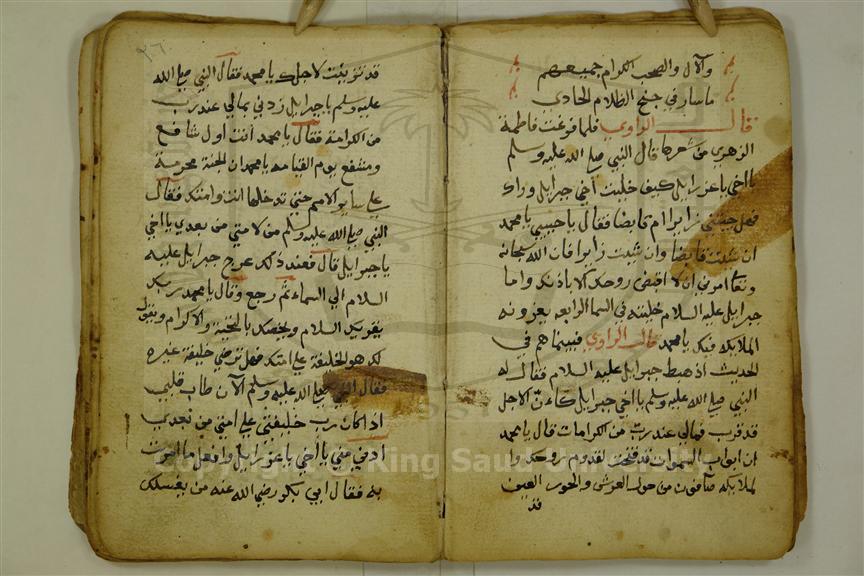 وآلال والصحب الكرام جميعهم
ماسار في جنح الظلام الحادي
قال الراوي فلما فرغت فاطمة
الزهري من شعرها قال النبي صلي الله عليه وسلم
يا اخي يا عزرايل كيف خليت أخي جبرايل وراك
فهل جيتني زايرا ام قابضا فقال يا حبيبي يا محمد
ان شيت قابضا وان شيت زايرا فان الله سبحانه
وتعا امرني ان لا اقبض روحك الا باذنك واما
جبرايل عليه السلام خليته في السما الرابعه يعزونه
الملايكه فيك يا محمد قال الراوي فبينما هم في
الحديث اذ هبط جبرايل عليه السلام فقال له
النبي صلي الله عليه وسلم يا اخي جبرايل كان الاجل
قد قرب فمالي عند رب من الكرامات قال يا محمد
ان ابواب السموات قد فتحت لقدوم روحك وا
لملايكه صافون من حول العرش والحور العين
قد
٢٦
قد تزينت لاجلك يا محمد فقال النبي صلي الله
عليه وسلم يا جبرايل زدني بمالي عند رب
من الكرامة فقال يا محمد انت اول شافع
ومشفع يوم القيامه يا محمد ان الجنة محرمة
علي ساير الامم حتي تدخلها انت وامتك فقال
النبي صلي الله عليه وسلم من لامتي من بعدي يا اخي
يا جبرايل قال فعند ذلك عرج جبرايل عليه
السلام الي السماء ثم رجع وقال يا محمد ربك
يقريك السلام ويخصك بالتحية والاكرام ويقول
لك هو الخليفة علي امتك فهل ترضي خليفة غيره
فقال النبي صلي الله عليه وسلم الان طاب قلبي
اذا كان رب خليفتي علي امتي من بعدي
ادني مني يا أخي يا عزرايل وافعل ما امرت
به فقال ابي بكر رضي الله عنه من يغسلك
King Saud University